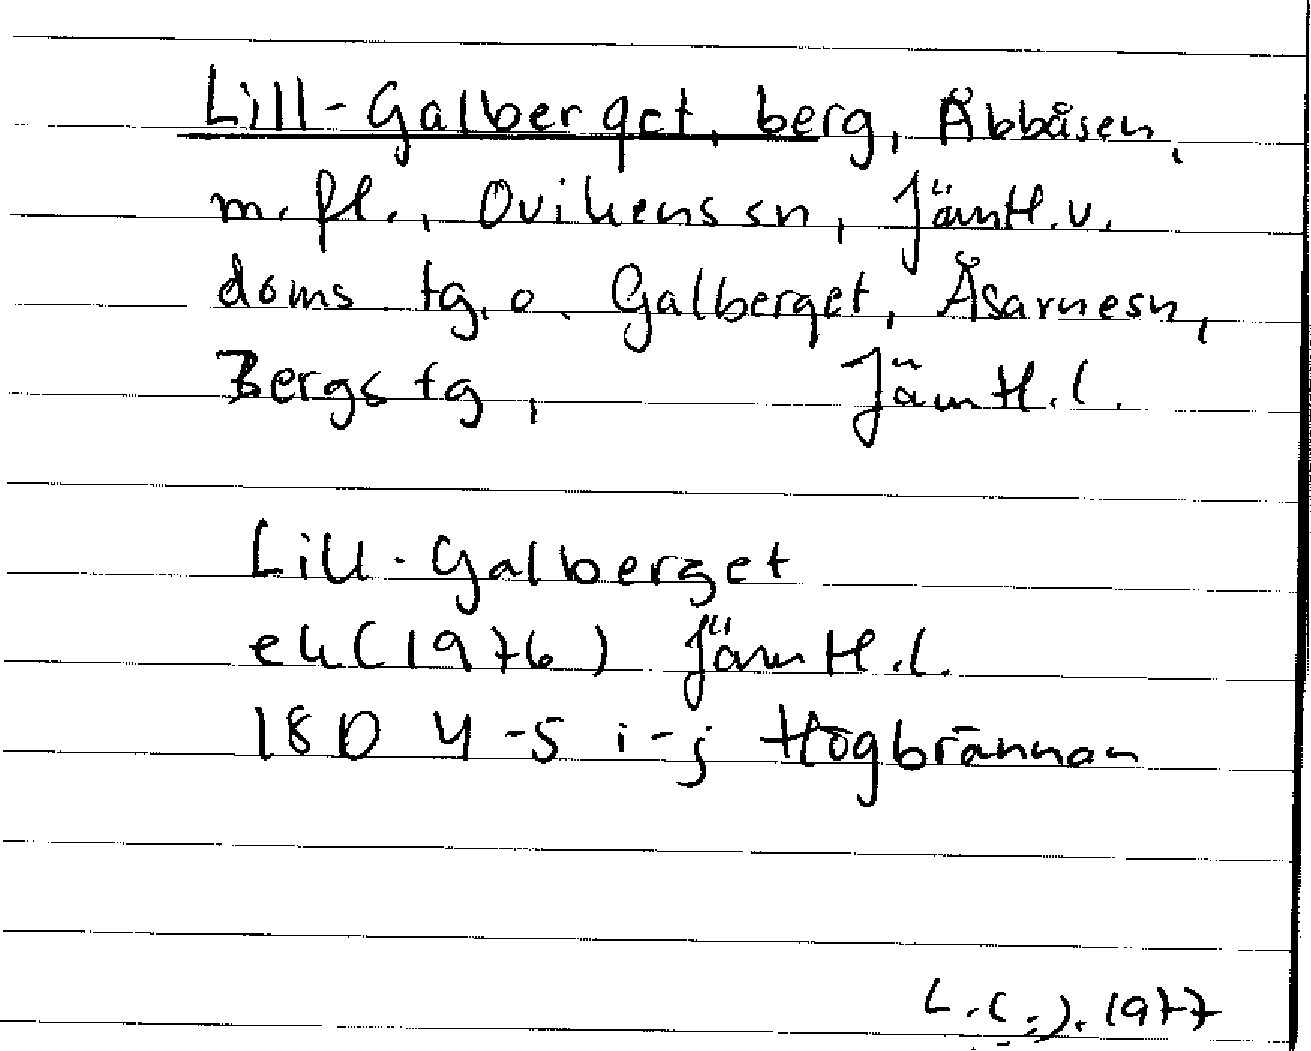 Lill-Galberget, berg, Åbbåsen,
m.fl., Ovikens sn, Jämtl. v.
doms tg. o. Galberget, Åsarne sn,
Bergs tg, Jämtl. l.
Lill-Galberget
ek (1976) Jämtl. l.
18D 4-5 i-j Högbrännan
1977